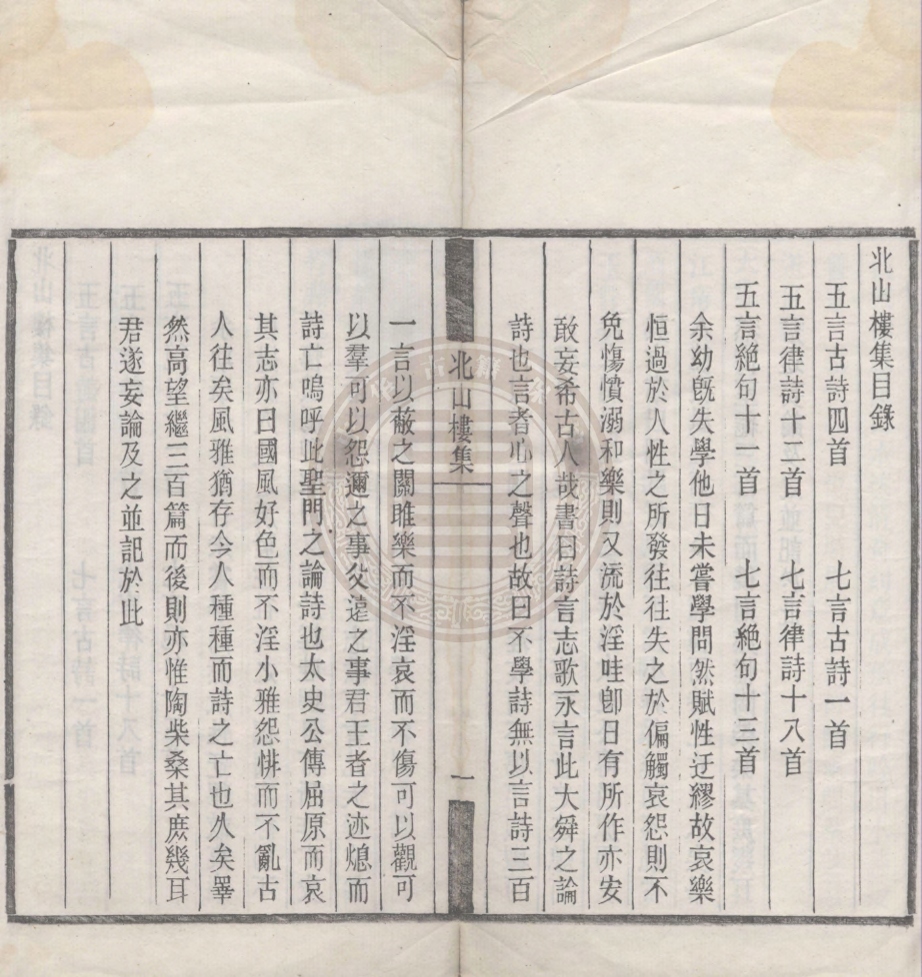 北山樓集目錄
五言古詩四首　七言古詩一首
五言律詩十二首　七言律詩十八首
五言絕句十一首　七言絕句十三首
余幼旣失學他日未嘗學問然賦性迂繆故哀樂
恒過於人性之所發往往失之於偏觸哀怨則不
免傷憤溺和樂則又流於淫哇卽日有所作亦安
敢妄希古人哉書曰詩言志歌永言此大舜之論
詩也言者心之聲也故曰不學詩無以言詩三百
北山樓集
一
一言以蔽之關雎樂而不淫哀而不傷可以觀可
以羣可以怨邇之事父遠之事君王者之迹熄而
詩亡嗚呼此聖門之論詩也太史公傳屈原而哀
其志亦曰國風好色而不淫小雅怨悱而不亂古
人往矣風雅猶存今人種種而詩之亡也久矣睪
然高望繼三百篇而後則亦惟陶柴桑其庶幾耳
君遂妄論及之並記於此